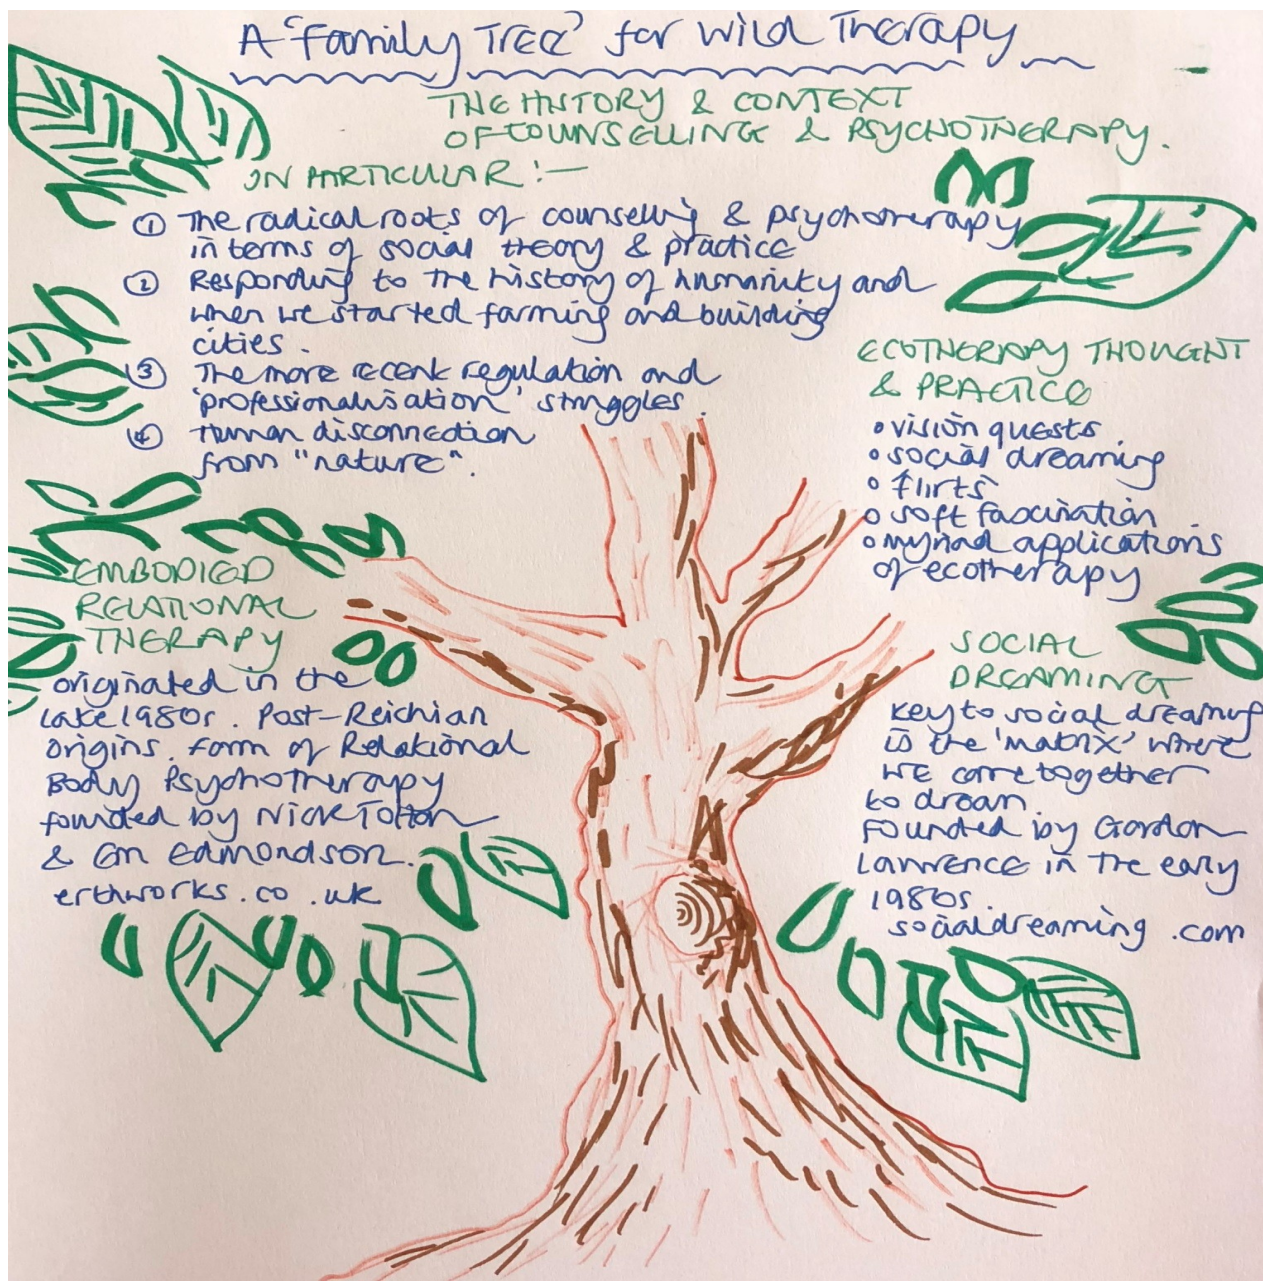 A 'Family Tree' for Wild Therapy
THE HISTORY & CONTEXT
OF COUNSELLING & PSYCHOTHERAPY.
IN PARTICULAR :-
① The radical roots of counselling & psychotherapy
in terms of social theory & practice
② Responding to the history of humanity and
when we started farming and building
cities.
③ The more recent regulation and
'professionalisation' struggles.
④ Human disconnection
from "nature".
ECOTHERAPY THOUGHT
& PRACTICE
• vision quests
• social dreaming
• flirts
• soft fascination
• myriad applications
of ecotherapy
EMBODIED
RELATIONAL
THERAPY
originated in the
late 1980s. Post-Reichian
origins. Form of Relational
Body Psychotherapy
founded by Nick Totton
& Em Edmondson.
erthworks.co.uk
SOCIAL
DREAMING
Key to social dreaming
is the 'matrix' where
we come together
to dream.
Founded by Gordon
Lawrence in the early
1980s.
socialdreaming.com